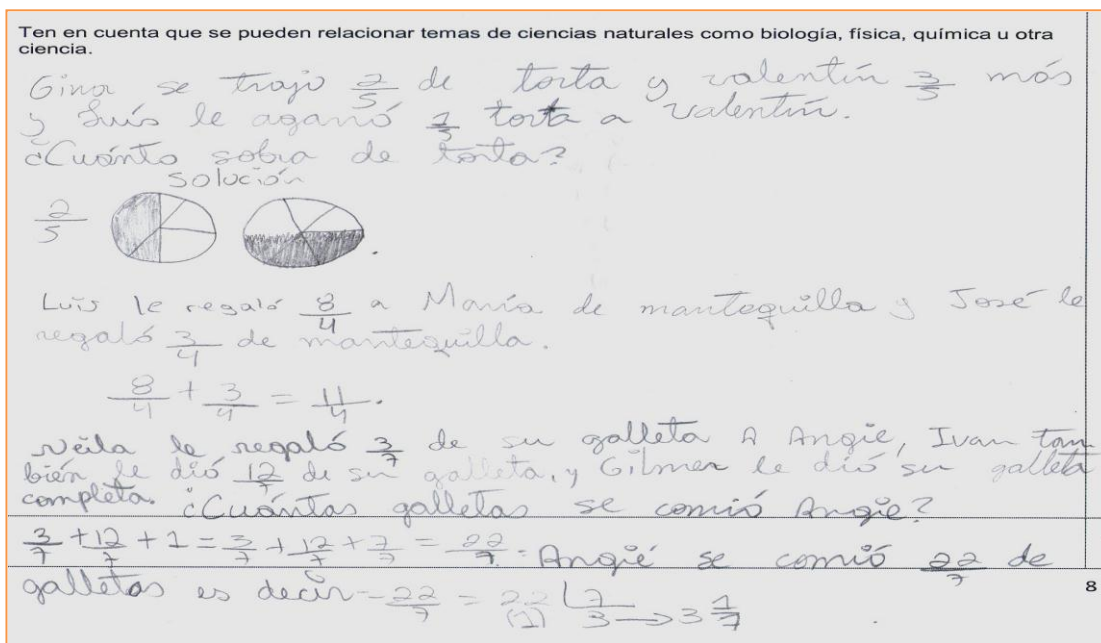 Ten en cuenta que se pueden relacionar temas de ciencias naturales como biología, física, química u otra
ciencia.
Gina se trajo 2/5 de torta y valentín 3/5 más
y Luís le agarró 1/5 torta a valentín.
¿Cuánto sobra de torta?
Solución
2/5
Luis le regaló 8/4 a María de mantequilla y José le
regaló 3/4 de mantequilla.
8/4 + 3/4 = 11/4.
Neila le regaló 3/7 de su galleta A Angie, Ivan tam
bién le dió 12/7 de su galleta, y Gilmer le dió su galleta
completa. ¿Cuántas galletas se comió Angie?
3/7 + 12/7 + 1 = 3/7 + 12/7 + 7/7 = 22/7. Angie se comió 22/7 de
galletas es decir - 22/7 = 22 | 7
(1) 3 → 3 1/7
8